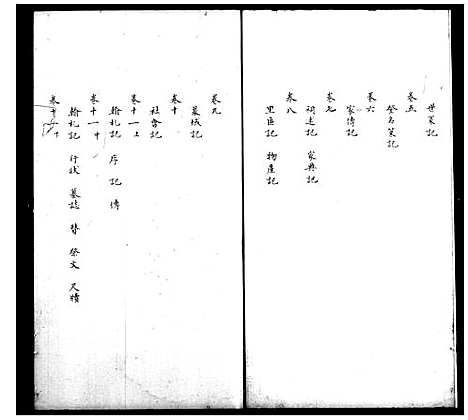 世系記
卷五
登名策記
卷六
家傳記
卷七
祠述記 家典記
卷八
里區記 物產記
卷九
墓域記
卷十
社會記
卷十一上
翰札記 序 記 傳
卷十一中
翰札記 行狀 墓誌 贊 祭文 尺牘
卷十一下